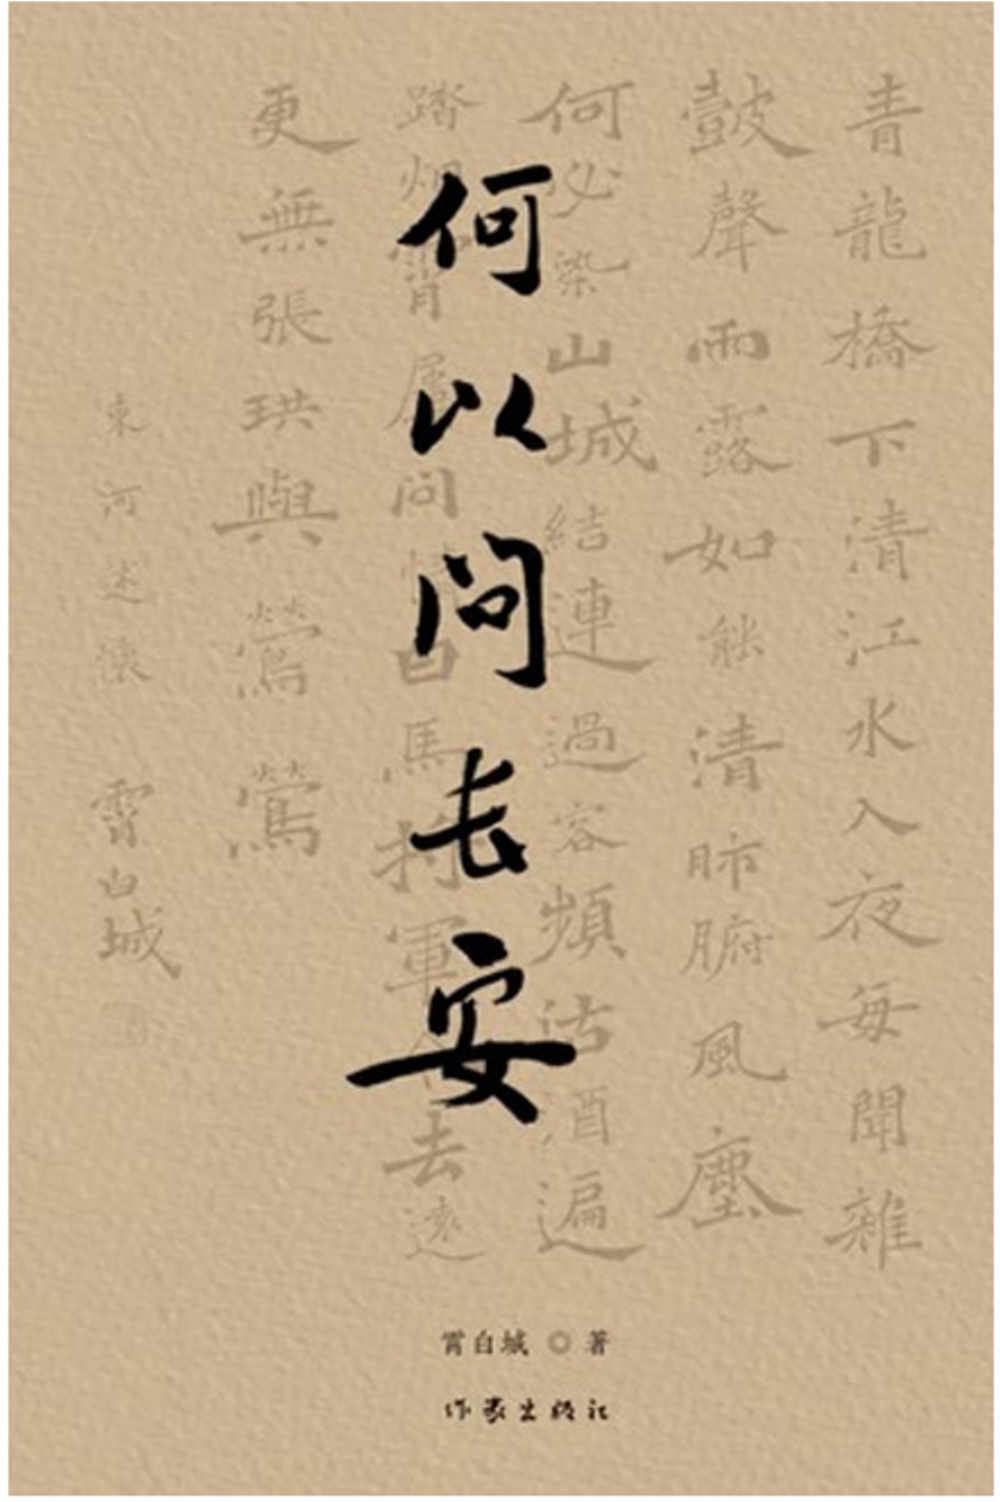 何以问长安
青龍橋下清江水入夜每聞雜
鼓聲雨露如能清肺腑風塵
何必染山城結連過客頻沽酒遍
踏 霄 問 白馬將軍 去遠
更無張珙與鶯鶯
東河述懷
霄白城
霄白城 ◎ 著
作家出版社